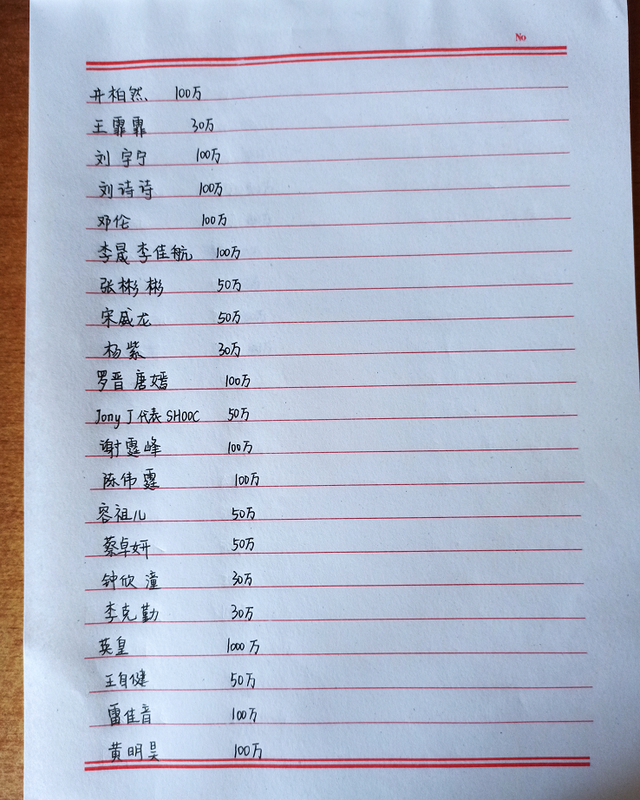 No
井柏然、 100万
王霏霏 30万
刘宇宁 100万
刘诗诗 100万
邓伦 100万
李晟 李佳航 100万
张彬彬 50万
宋威龙 50万
杨紫 30万
罗晋 唐嫣 100万
Jony J 代表 SHOOC 50万
谢霆峰 100万
陈伟霆 100万
容祖儿 50万
蔡卓妍 50万
钟欣潼 30万
李克勤 30万
英皇 1000万
王自健 50万
雷佳音 100万
黄明昊 100万